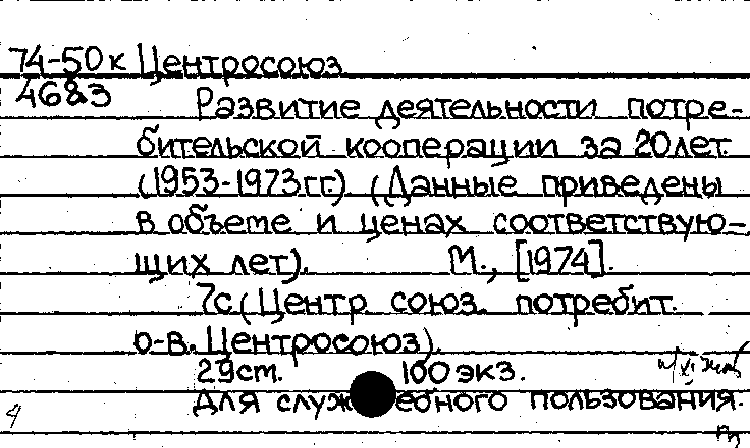 74-50к Центросоюз
4683 Развитие деятельности потре-
бительской кооперации за 20 лет
(1953-1973гг.). (Данные приведены
в объеме и ценах соответствую-
щих лет). М., [1974].
7с. (Центр. союз. потребит.
о-в. Центросоюз).
29ст. 100 экз.
Для служебного пользования.